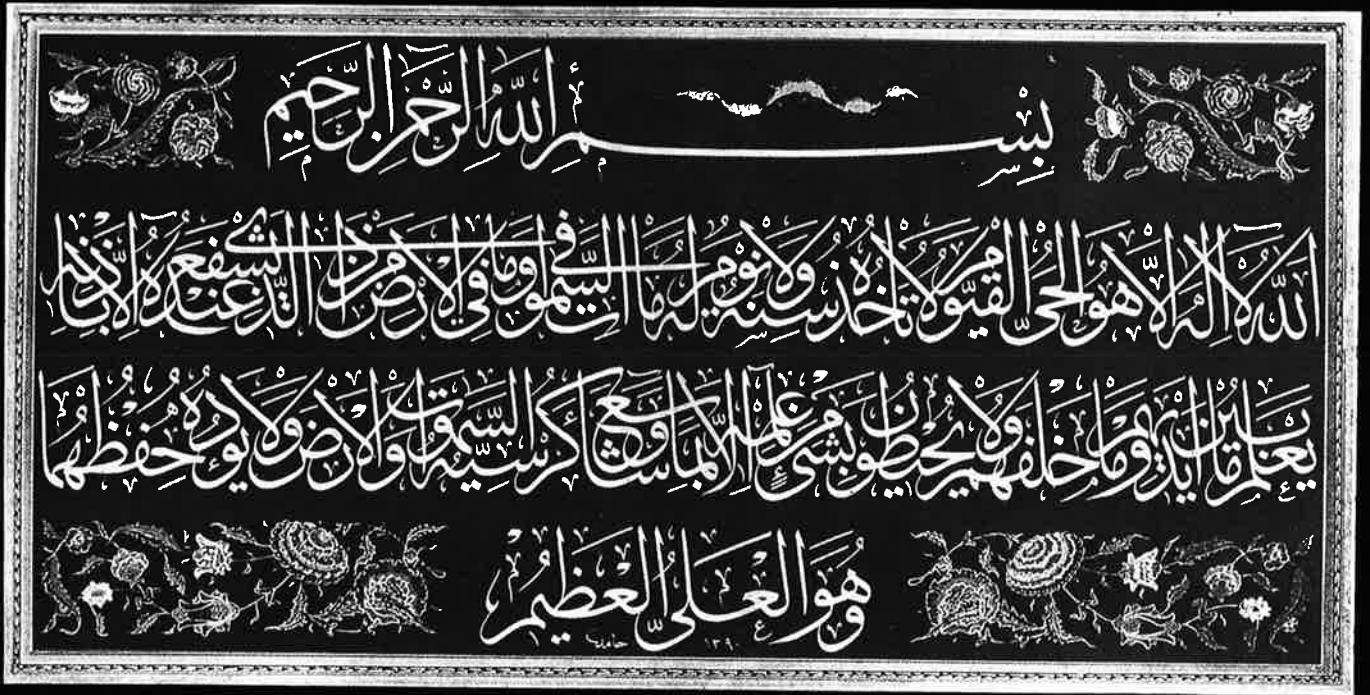 بِسْمِ اللّٰهِ الرَّحْمٰنِ الرَّحِيمِ
اَللّٰهُ لَا اِلٰهَ اِلَّا هُوَ الْحَيُّ الْقَيُّومُ لَا تَأْخُذُهُ سِنَةٌ وَلَا نَوْمٌ لَهُ مَا فِي السَّمٰوَاتِ وَمَا فِي الْاَرْضِ مَنْ ذَا الَّذِي يَشْفَعُ عِنْدَهُ اِلَّا بِاِذْنِهِ
يَعْلَمُ مَا بَيْنَ اَيْدِيهِمْ وَمَا خَلْفَهُمْ وَلَا يُحِيطُونَ بِشَيْءٍ مِنْ عِلْمِهِ اِلَّا بِمَا شَاءَ وَسِعَ كُرْسِيُّهُ السَّمٰوَاتِ وَالْاَرْضَ وَلَا يَؤُدُهُ حِفْظُهُمَا
وَهُوَ الْعَلِيُّ الْعَظِيمُ
حامد ١٣٩٠